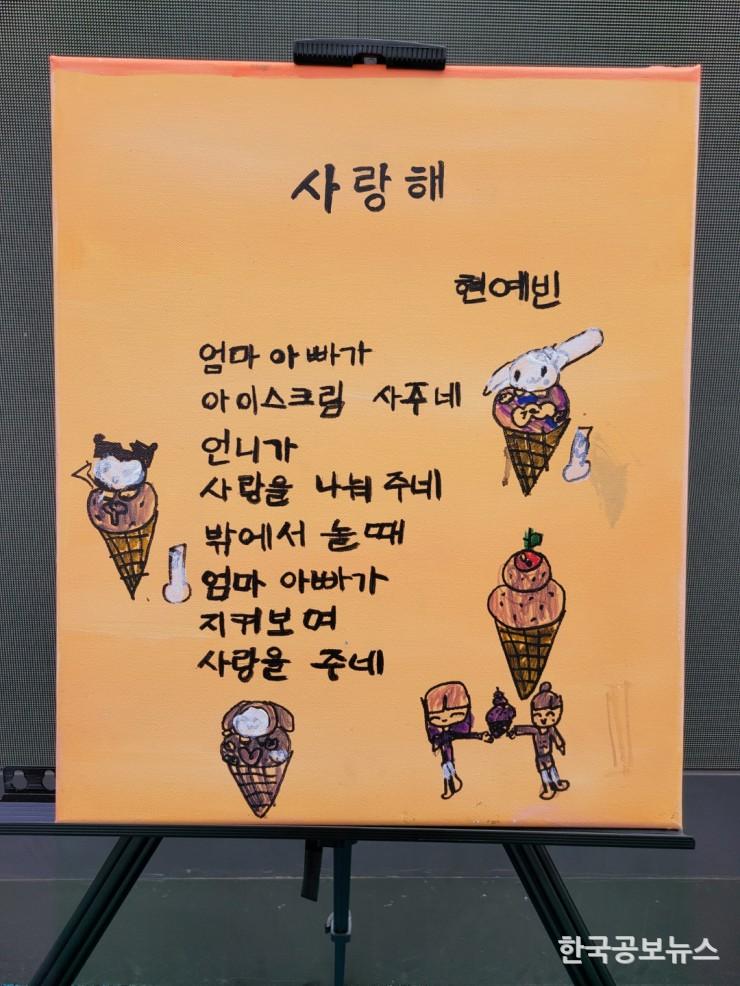 사랑해
현예빈
엄마 아빠가
아이스크림 사주네
언니가
사랑을 나눠 주네
밖에서 놀때
엄마 아빠가
지켜보며
사랑을 주네
한국공보뉴스